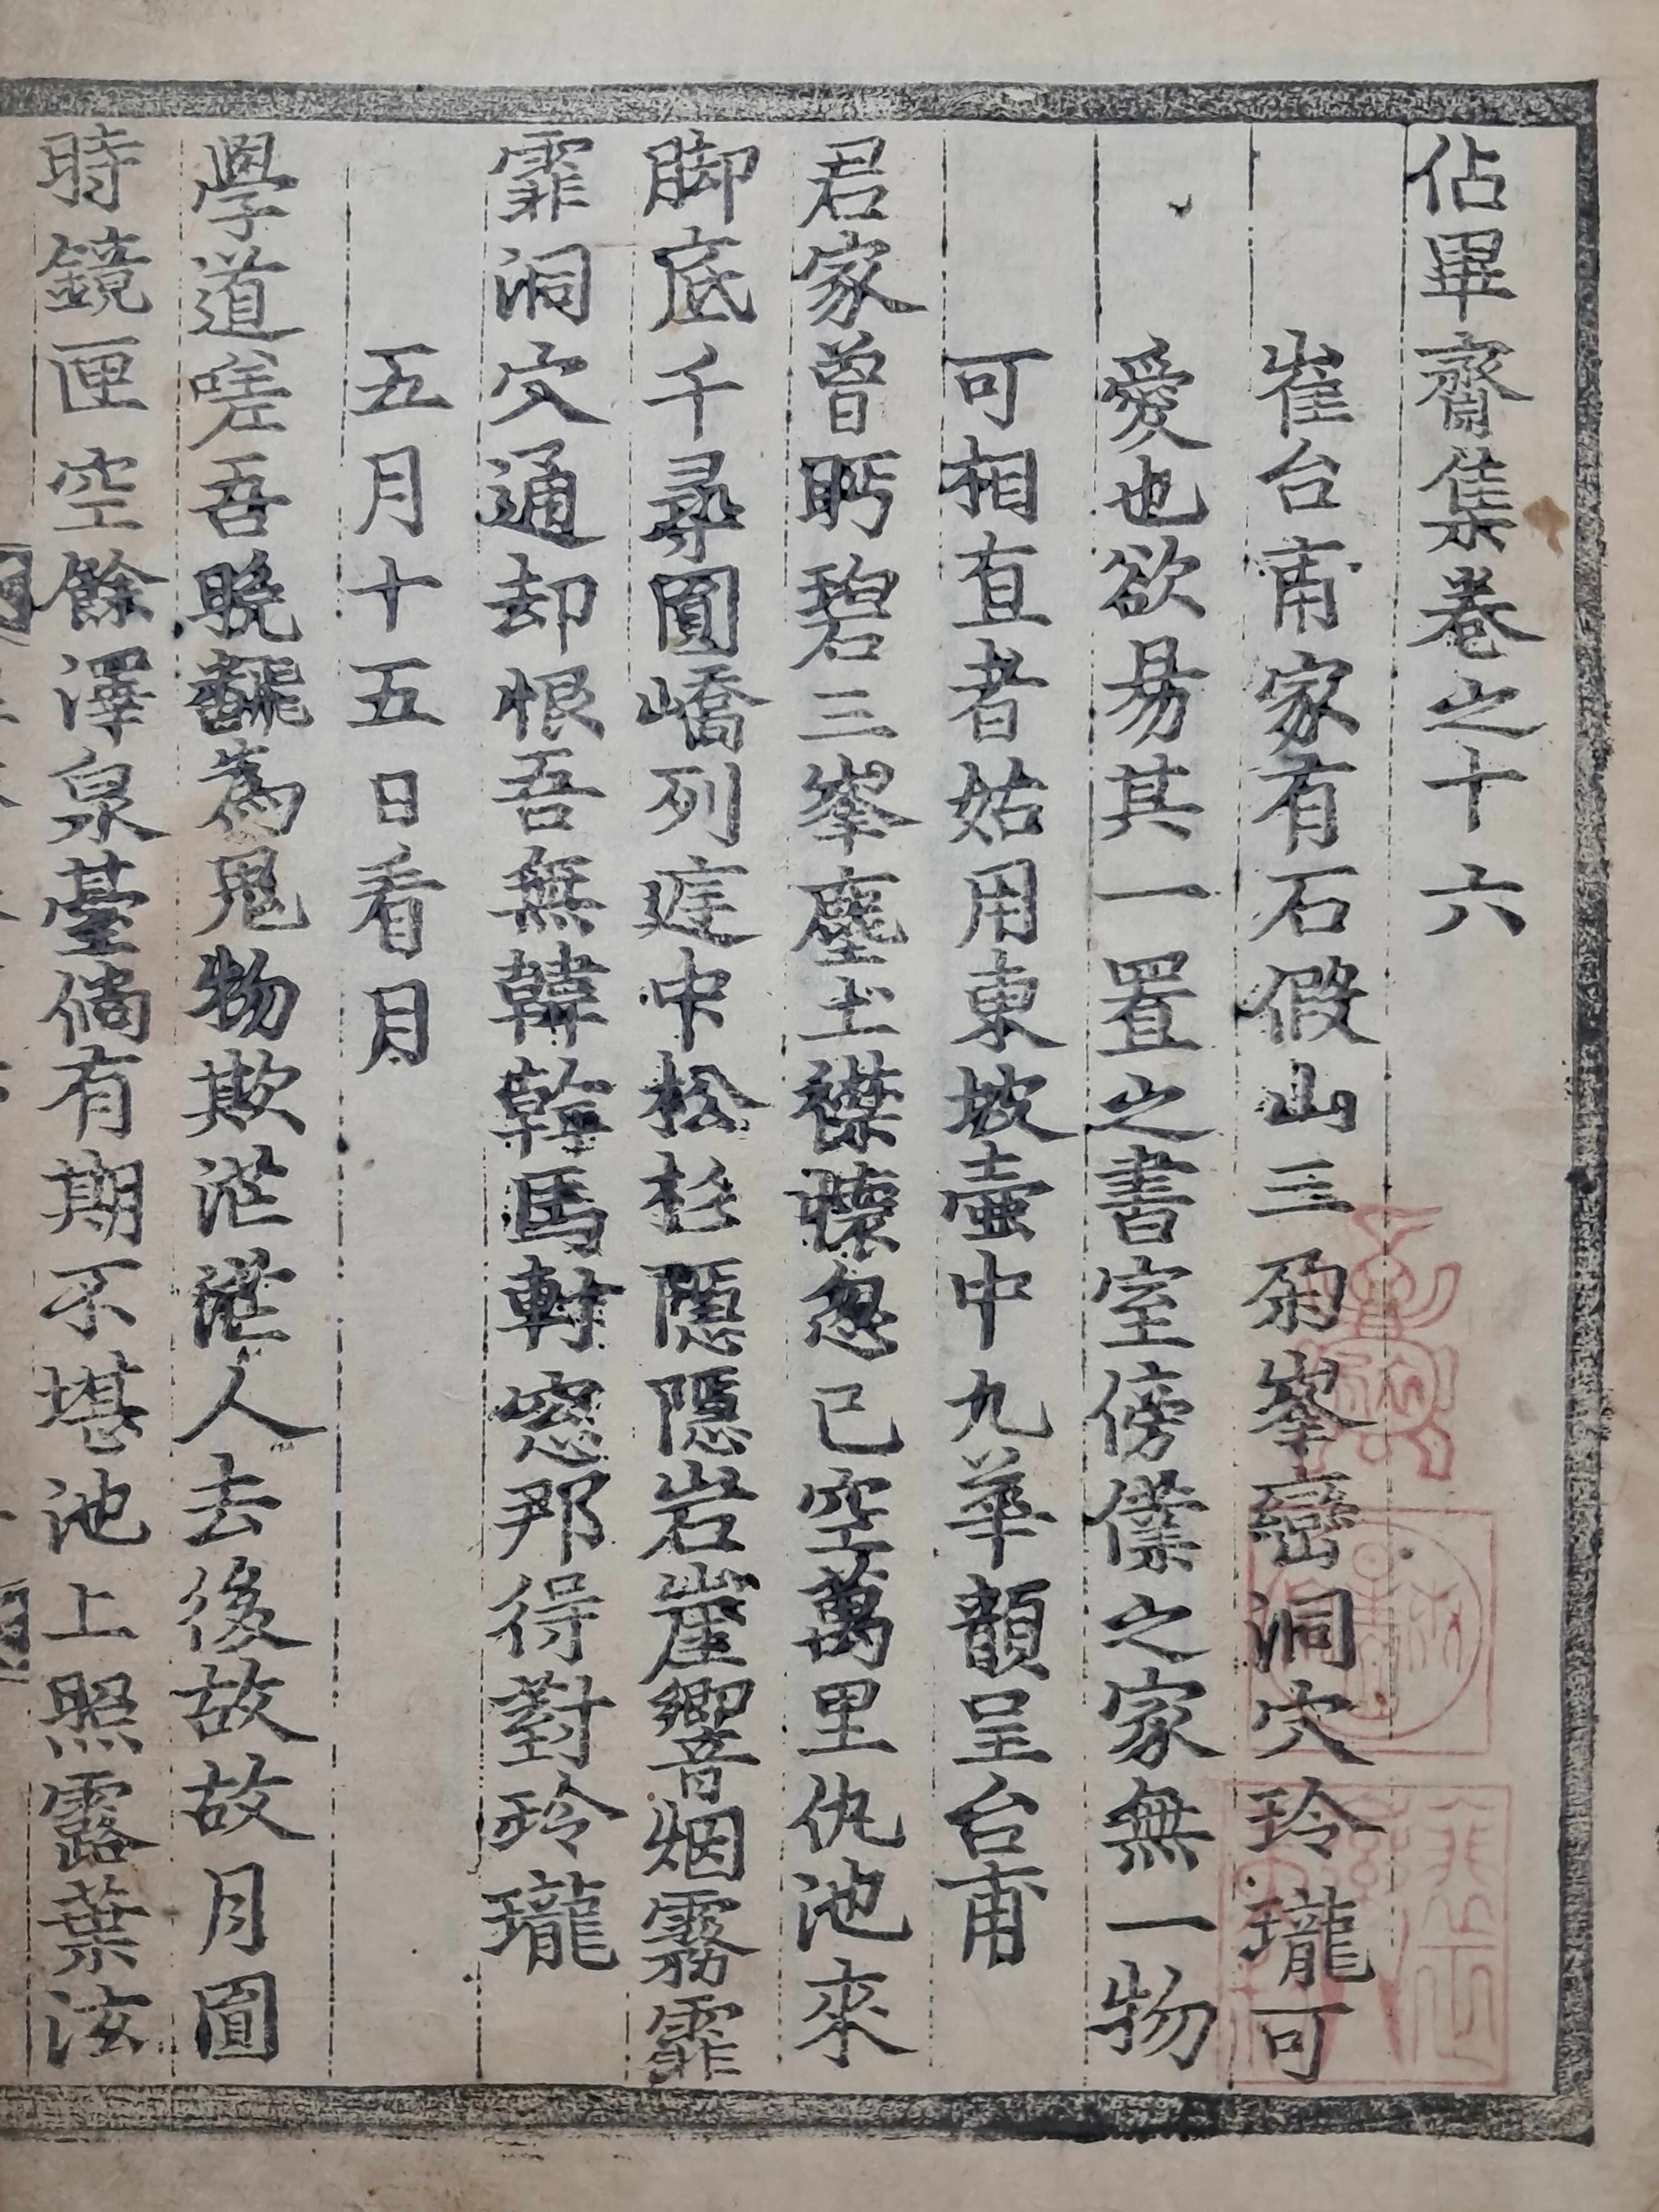 佔畢齋集卷之十六
崔台甫家有石假山三朶峯巒洞穴玲瓏可
愛也欲易其一置之書室傍僕之家無一物
可相直者姑用東坡壺中九華韻呈台甫
君家曾眄碧三峯塵土襟懷忽已空萬里仇池來
脚底千尋圓嶠列庭中松杉隱隱岩崖響烟霧霏
霏洞穴通却恨吾無韓幹馬軒窓那得對玲瓏
五月十五日看月
學道嗟吾晩飜爲見物欺茫茫人去後故故月圓
時鏡匣空餘澤泉臺倘有期不堪池上照露葉泫